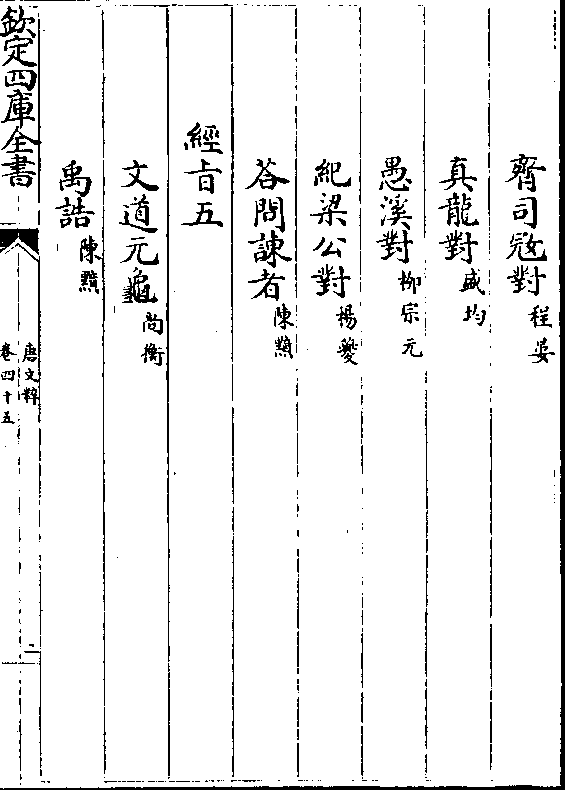 齊司𡨥對 程晏
真龍對 盛均
愚溪對 柳宗元
紀梁公對 楊夔
荅問諫者 陳黯
經旨五
文道元龜 尚衡
禹誥 陳黯
欽定四庫全書
唐文粹
卷四十五
二